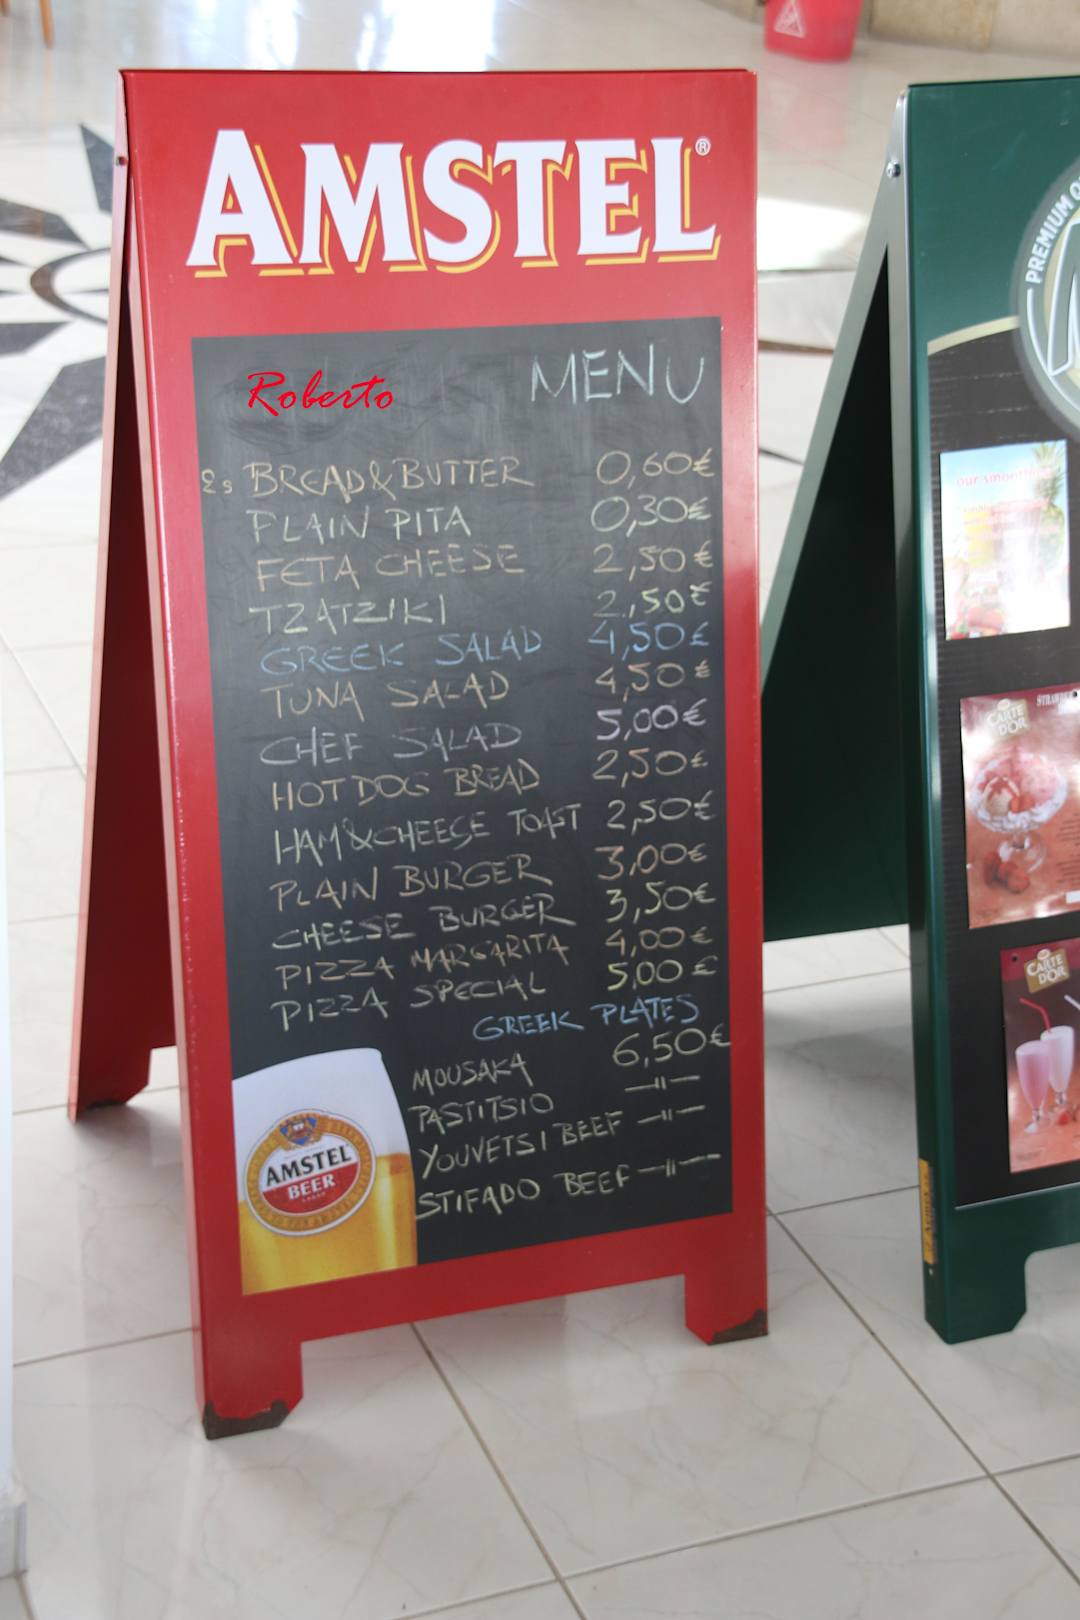 AMSTEL®
Roberto MENU
2s BREAD&BUTTER 0,60€
PLAIN PITA 0,30€
FETA CHEESE 2,50€
TZATZIKI 2,50€
GREEK SALAD 4,50€
TUNA SALAD 4,50€
CHEF SALAD 5,00€
HOT DOG BREAD 2,50€
HAM&CHEESE TOAST 2,50€
PLAIN BURGER 3,00€
CHEESE BURGER 3,50€
PIZZA MARGARITA 4,00€
PIZZA SPECIAL 5,00€
GREEK PLATES
MOUSAKA 6,50€
PASTITSIO —11—
YOUVETSI BEEF —11—
STIFADO BEEF —11—
AMSTEL
BEER
PREMIUM
our
CARTE
D'OR
CARTE
D'OR